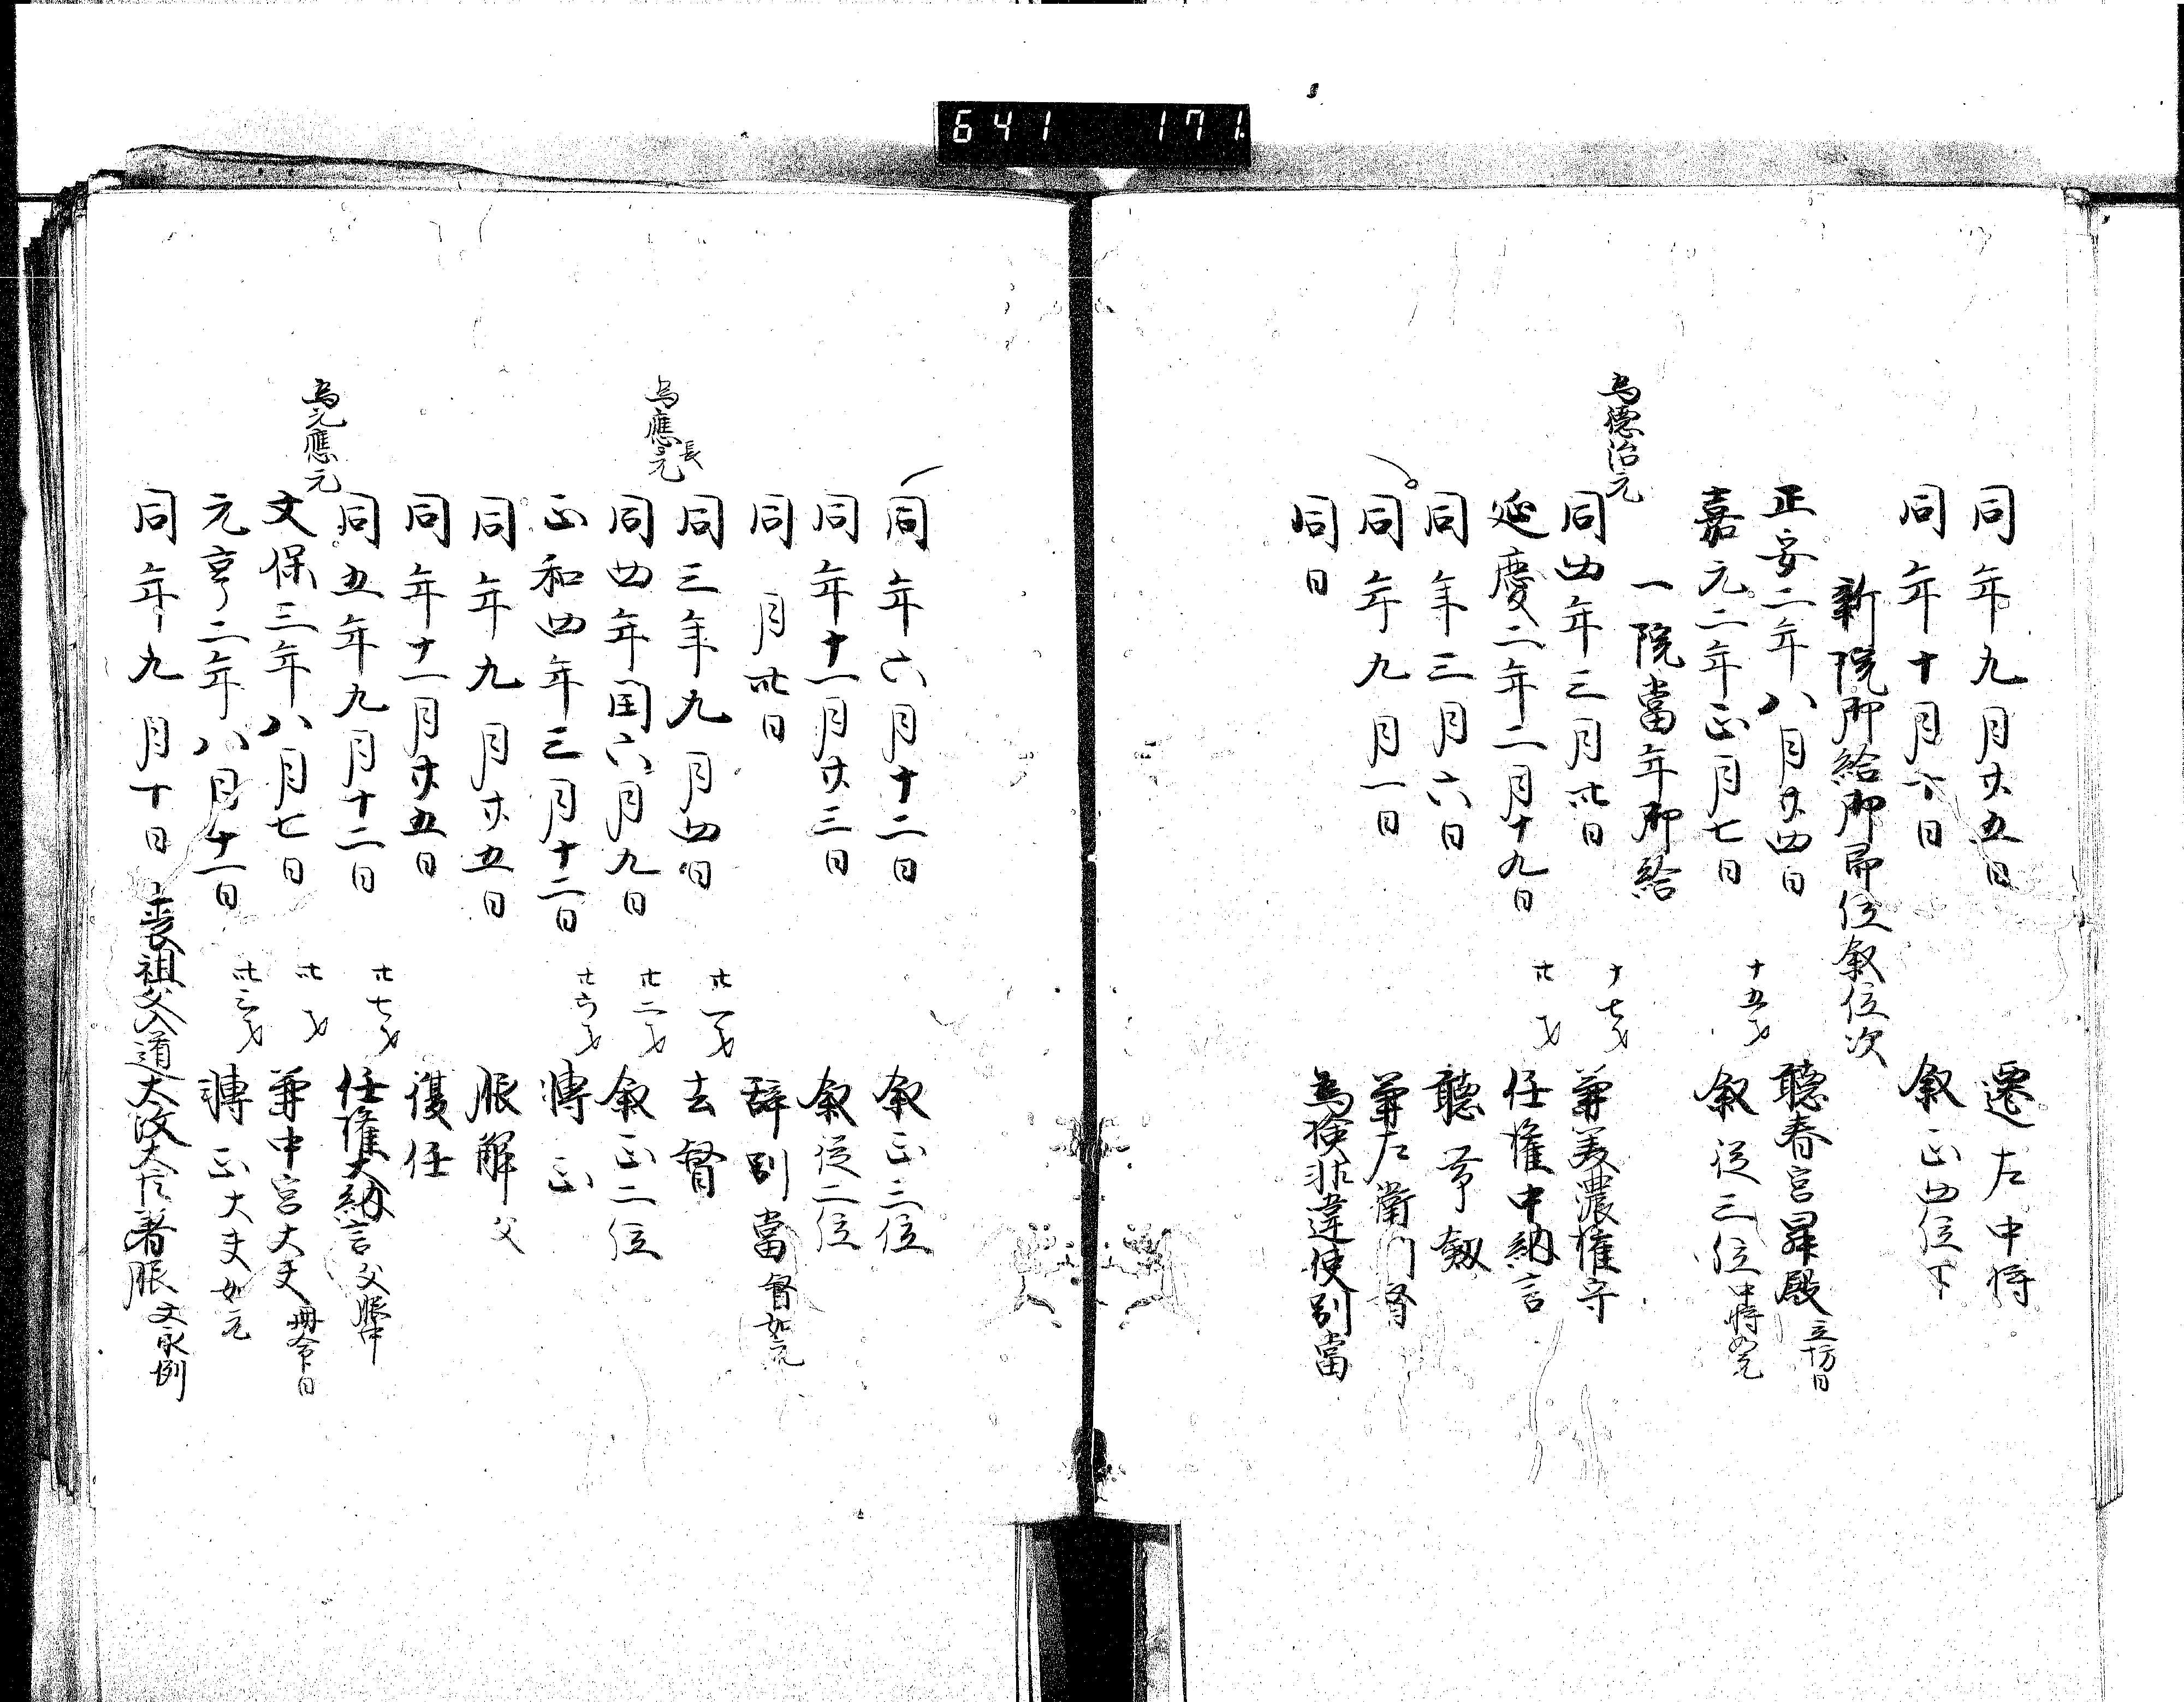 641 171
同年九月廿五日 遷左中将
同年十月 日 叙正四位下
新院御給御即位叙位次
正安二年八月廿四日 聴春宮昇殿 立坊日
嘉元二年正月七日 十五才 叙従三位 中将如元
一院當年御給
為徳治元
同四年三月卅日 十七才 兼美濃権守
延慶二年二月十九日 廿才 任権中納言
同年三月六日 聴帯剱
同年九月一日 兼左衛門督
同日 為検非違使別當
同年六月十二日 叙正三位
同年十一月廿三日 叙従二位
同月卅日 辞別當 督如元
同三年九月四日 廿一才 去督
為應長元
同四年閏六月九日 廿二才 叙正二位
正和四年三月十二日 廿六才 轉正
同年九月廿五日 服解 父
同年十一月廿五日 復任
同五年九月十二日 廿七才 任権大納言 父服中
為元應元
文保三年八月七日 卅才 兼中宮大夫 冊命日
元亨二年八月十一日 卅三才 轉正 大夫如元
同年九月十日 喪祖父入道大政大臣著服 文永例